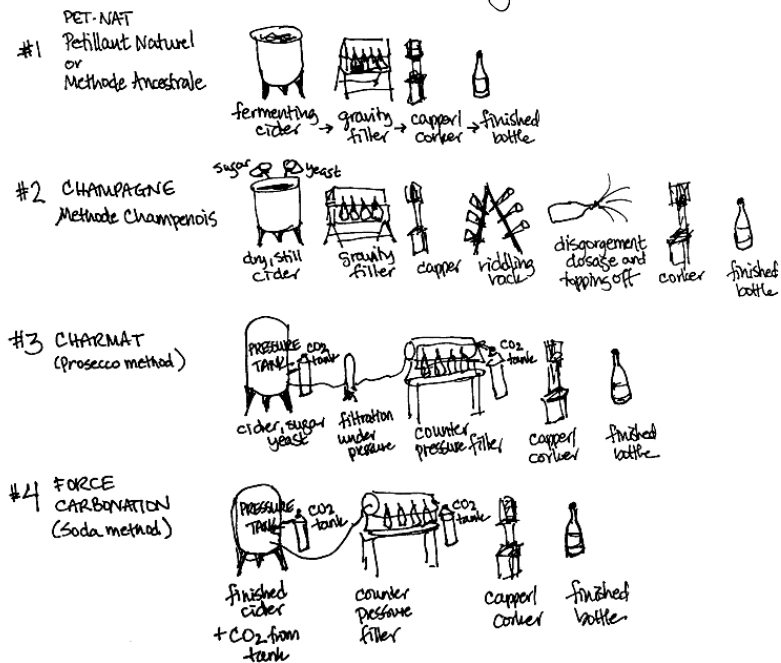 #1 PET-NAT
Petillant Naturel
or
Methode Ancestrale
fermenting
cider →
gravity
filler →
capper/
corker →
finished
bottle
#2 CHAMPAGNE
Methode Champenois
sugar
yeast
dry, still
cider
gravity
filler
capper
riddling
rack
disgorgement
dosage and
topping off
corker
finished
bottle
#3 CHARMAT
(Prosecco method)
PRESSURE
TANK
CO2
TANK
cider, sugar
yeast
filtration
under
pressure
CO2
tank
counter
pressure filler
capper/
corker
finished
bottle
#4 FORCE
CARBONATION
(Soda method)
PRESSURE
TANK
CO2
tank
finished
cider
+ CO2 from
tank
CO2
tank
counter
pressure
filler
capper/
corker
finished
bottle